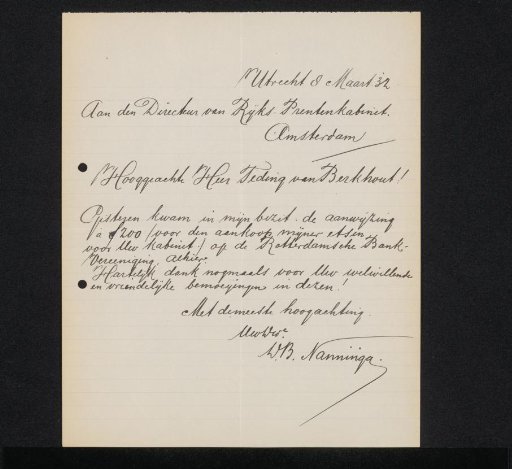 Utrecht 8 Maart '32
Aan den Directeur van Rijks Prentenkabinet.
Amsterdam
Hooggeachte Heer Teding van Berkhout!
Gisteren kwam in mijn bezit de aanwijzing
à ƒ200 (voor den aankoop mijner etsen
voor Uw Kabinet) op de Rotterdamsche Bank-
Vereeniging, alhier.
Hartelijk dank nogmaals voor Uw welwillende
en vriendelijke bemoeiingen in dezen!
Met de meeste hoogachting.
Uw Dw.
W.B. Nanninga.